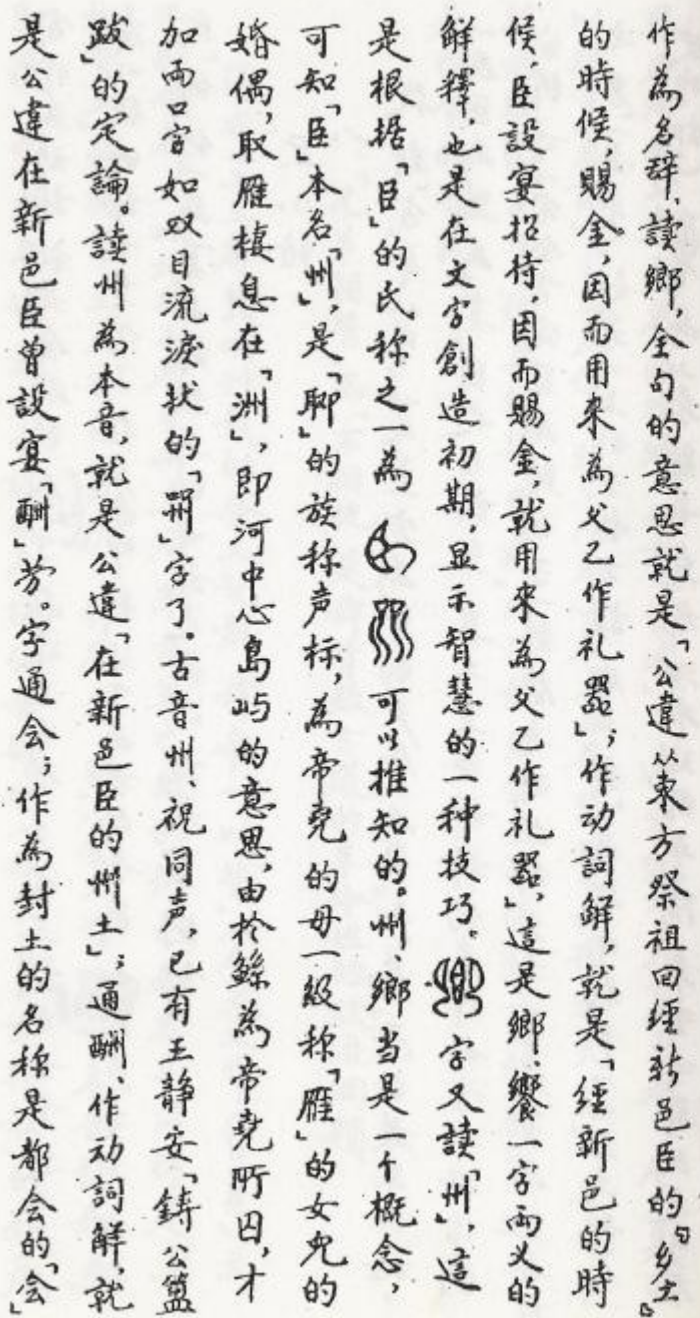 作為名辞、讀鄉，全句的意思就是「公違从東方祭祖回經新邑臣的『乡土』
的時候，賜金，因而用來為父乙作礼器」；作动詞解，就是「經新邑的時
候，臣設宴招待，因而賜金，就用來為父乙作礼器」，這是鄉、饗一字両义的
解釋，也是在文字創造初期，显示智慧的一种技巧。字又讀「州」，這
是根据「臣」的氏称之一為可以推知的。州、鄉当是一个概念，
可知「臣」本名「州」，是「聊」的族称声标，為帝尧的母一級称「雁」的女儿的
婚偶，取雁棲息在「洲」，即河中心島屿的意思，由於鲧為帝堯所囚，才
加両口字如双目流淚狀的「喌」字了。古音州、祝同声，已有王静安「鑄公簠
跋」的定論。讀州為本音，就是公違「在新邑臣的州土」；通酬、作动詞解，就
是公違在新邑臣曾設宴「酬」劳。字通会；作為封土的名称是都会的「会」